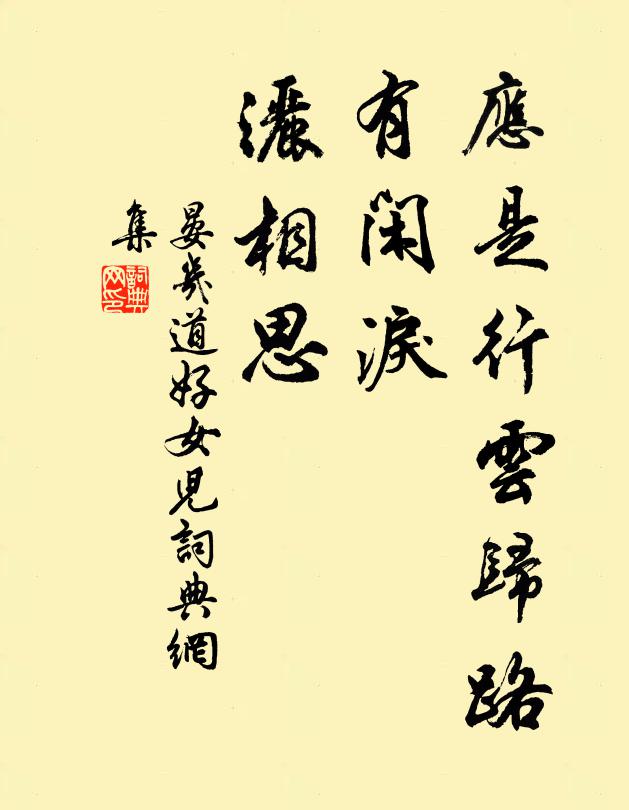 應是行雲歸路
有閑淚
灑相思
晏幾道好女兒詞典網
集
詞典
网印